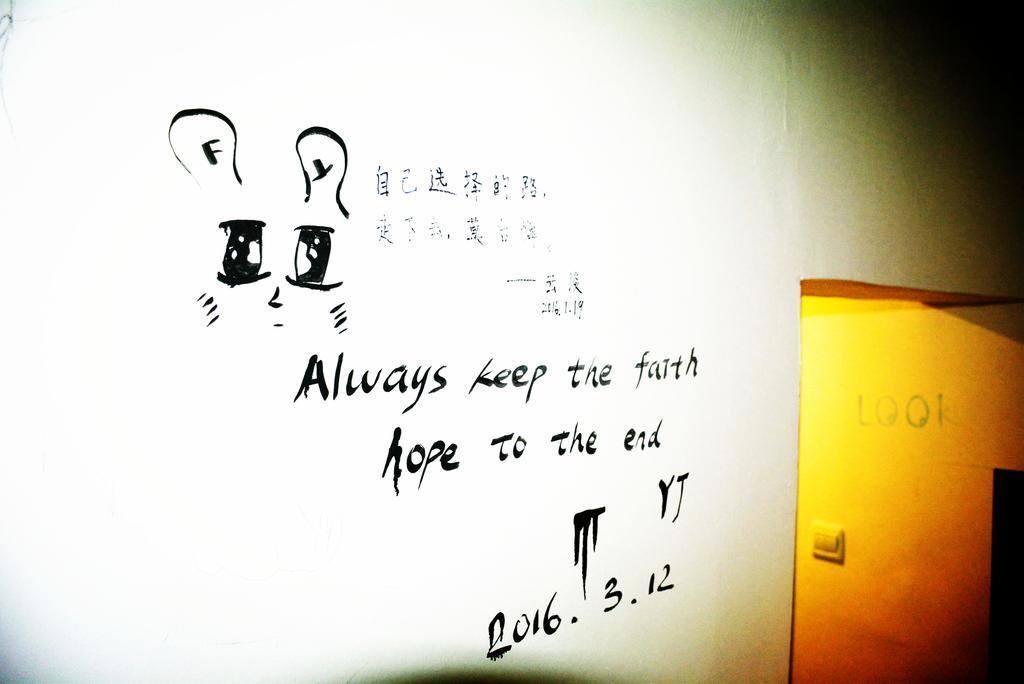 F Y
自己选择的路,
走下去, 莫后悔。
2016.1.19
Always keep the faith
hope to the end
YJ
2016. 3. 12
LOOK